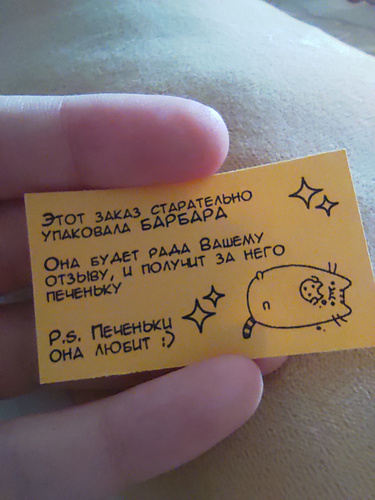 Этот заказ старательно
упаковала БАРБАРА
Она будет рада Вашему
отзыву, и получит за него
печеньку
P.S. Печеньки
она любит :)